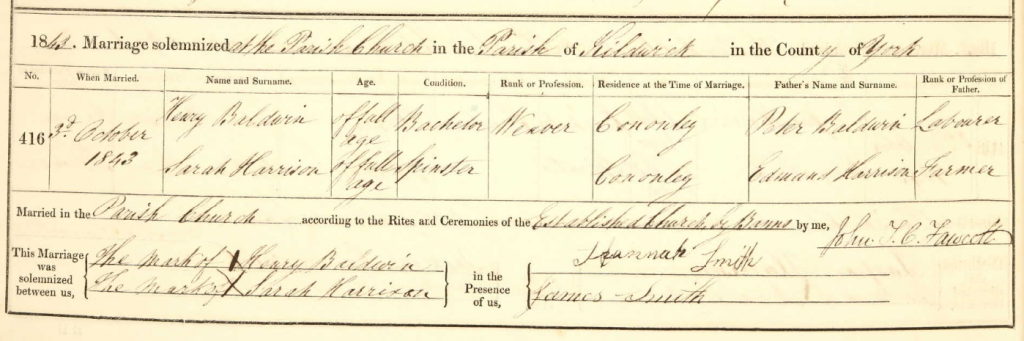 1843. Marriage solemnized at the Parish Church in the Parish of Kildwick in the County of York
No. When Married. Name and Surname. Age. Condition. Rank or Profession. Residence at the Time of Marriage. Father's Name and Surname. Rank or Profession of Father.
416 3d October 1843 Henry Baldwin of full age Bachelor Weaver Cononley Peter Baldwin Labourer
Sarah Harrison of full age Spinster Cononley Edmund Harrison Farmer
Married in the Parish Church according to the Rites and Ceremonies of the Established Church, by Banns by me, John T. C. Fawcett
This Marriage was solemnized between us,
The mark of X Henry Baldwin
The mark of X Sarah Harrison
in the Presence of us,
Hannah Smith
James Smith